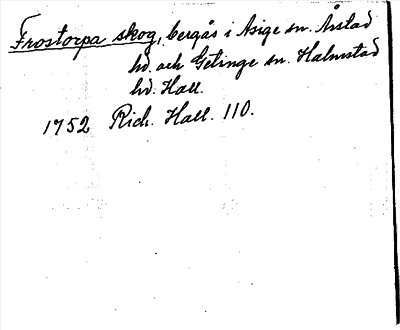 Frostorpa skog, bergås i Asige sn. Årstad
hd. och Getinge sn. Halmstad
hd. Hall.
1752 Rich. Hall. 110.